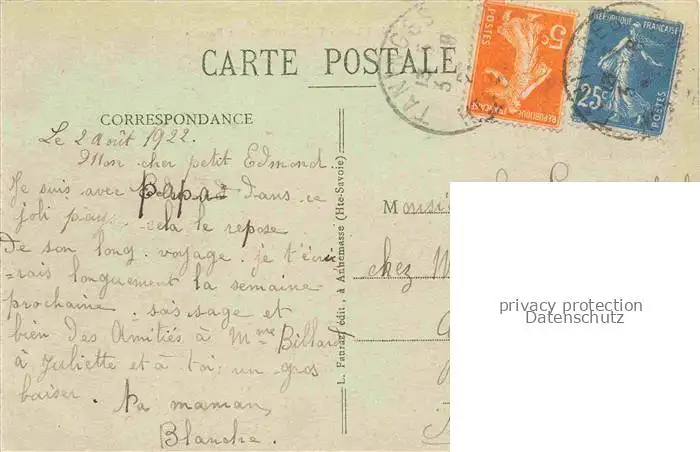 CARTE POSTALE
CORRESPONDANCE
Le 2 Août 1922.
Mon cher petit Edmond
Je suis avec papa dans ce
joli pays cela le repose
De son long voyage. je t'écri
-rais longuement la semaine
prochaine. sois sage et
bien des Amitiés à Mme Billard
à Juliette et à toi un gros
baiser. Ta maman,
Blanche.
L. Fauraz, édit., à Annemasse (Hte-Savoie)
POSTES
5c
REPUBLIQUE FRANÇAISE
REPUBLIQUE FRANÇAISE
25c
POSTES
TANINGES
13
Monsie
chez M
privacy protection
Datenschutz